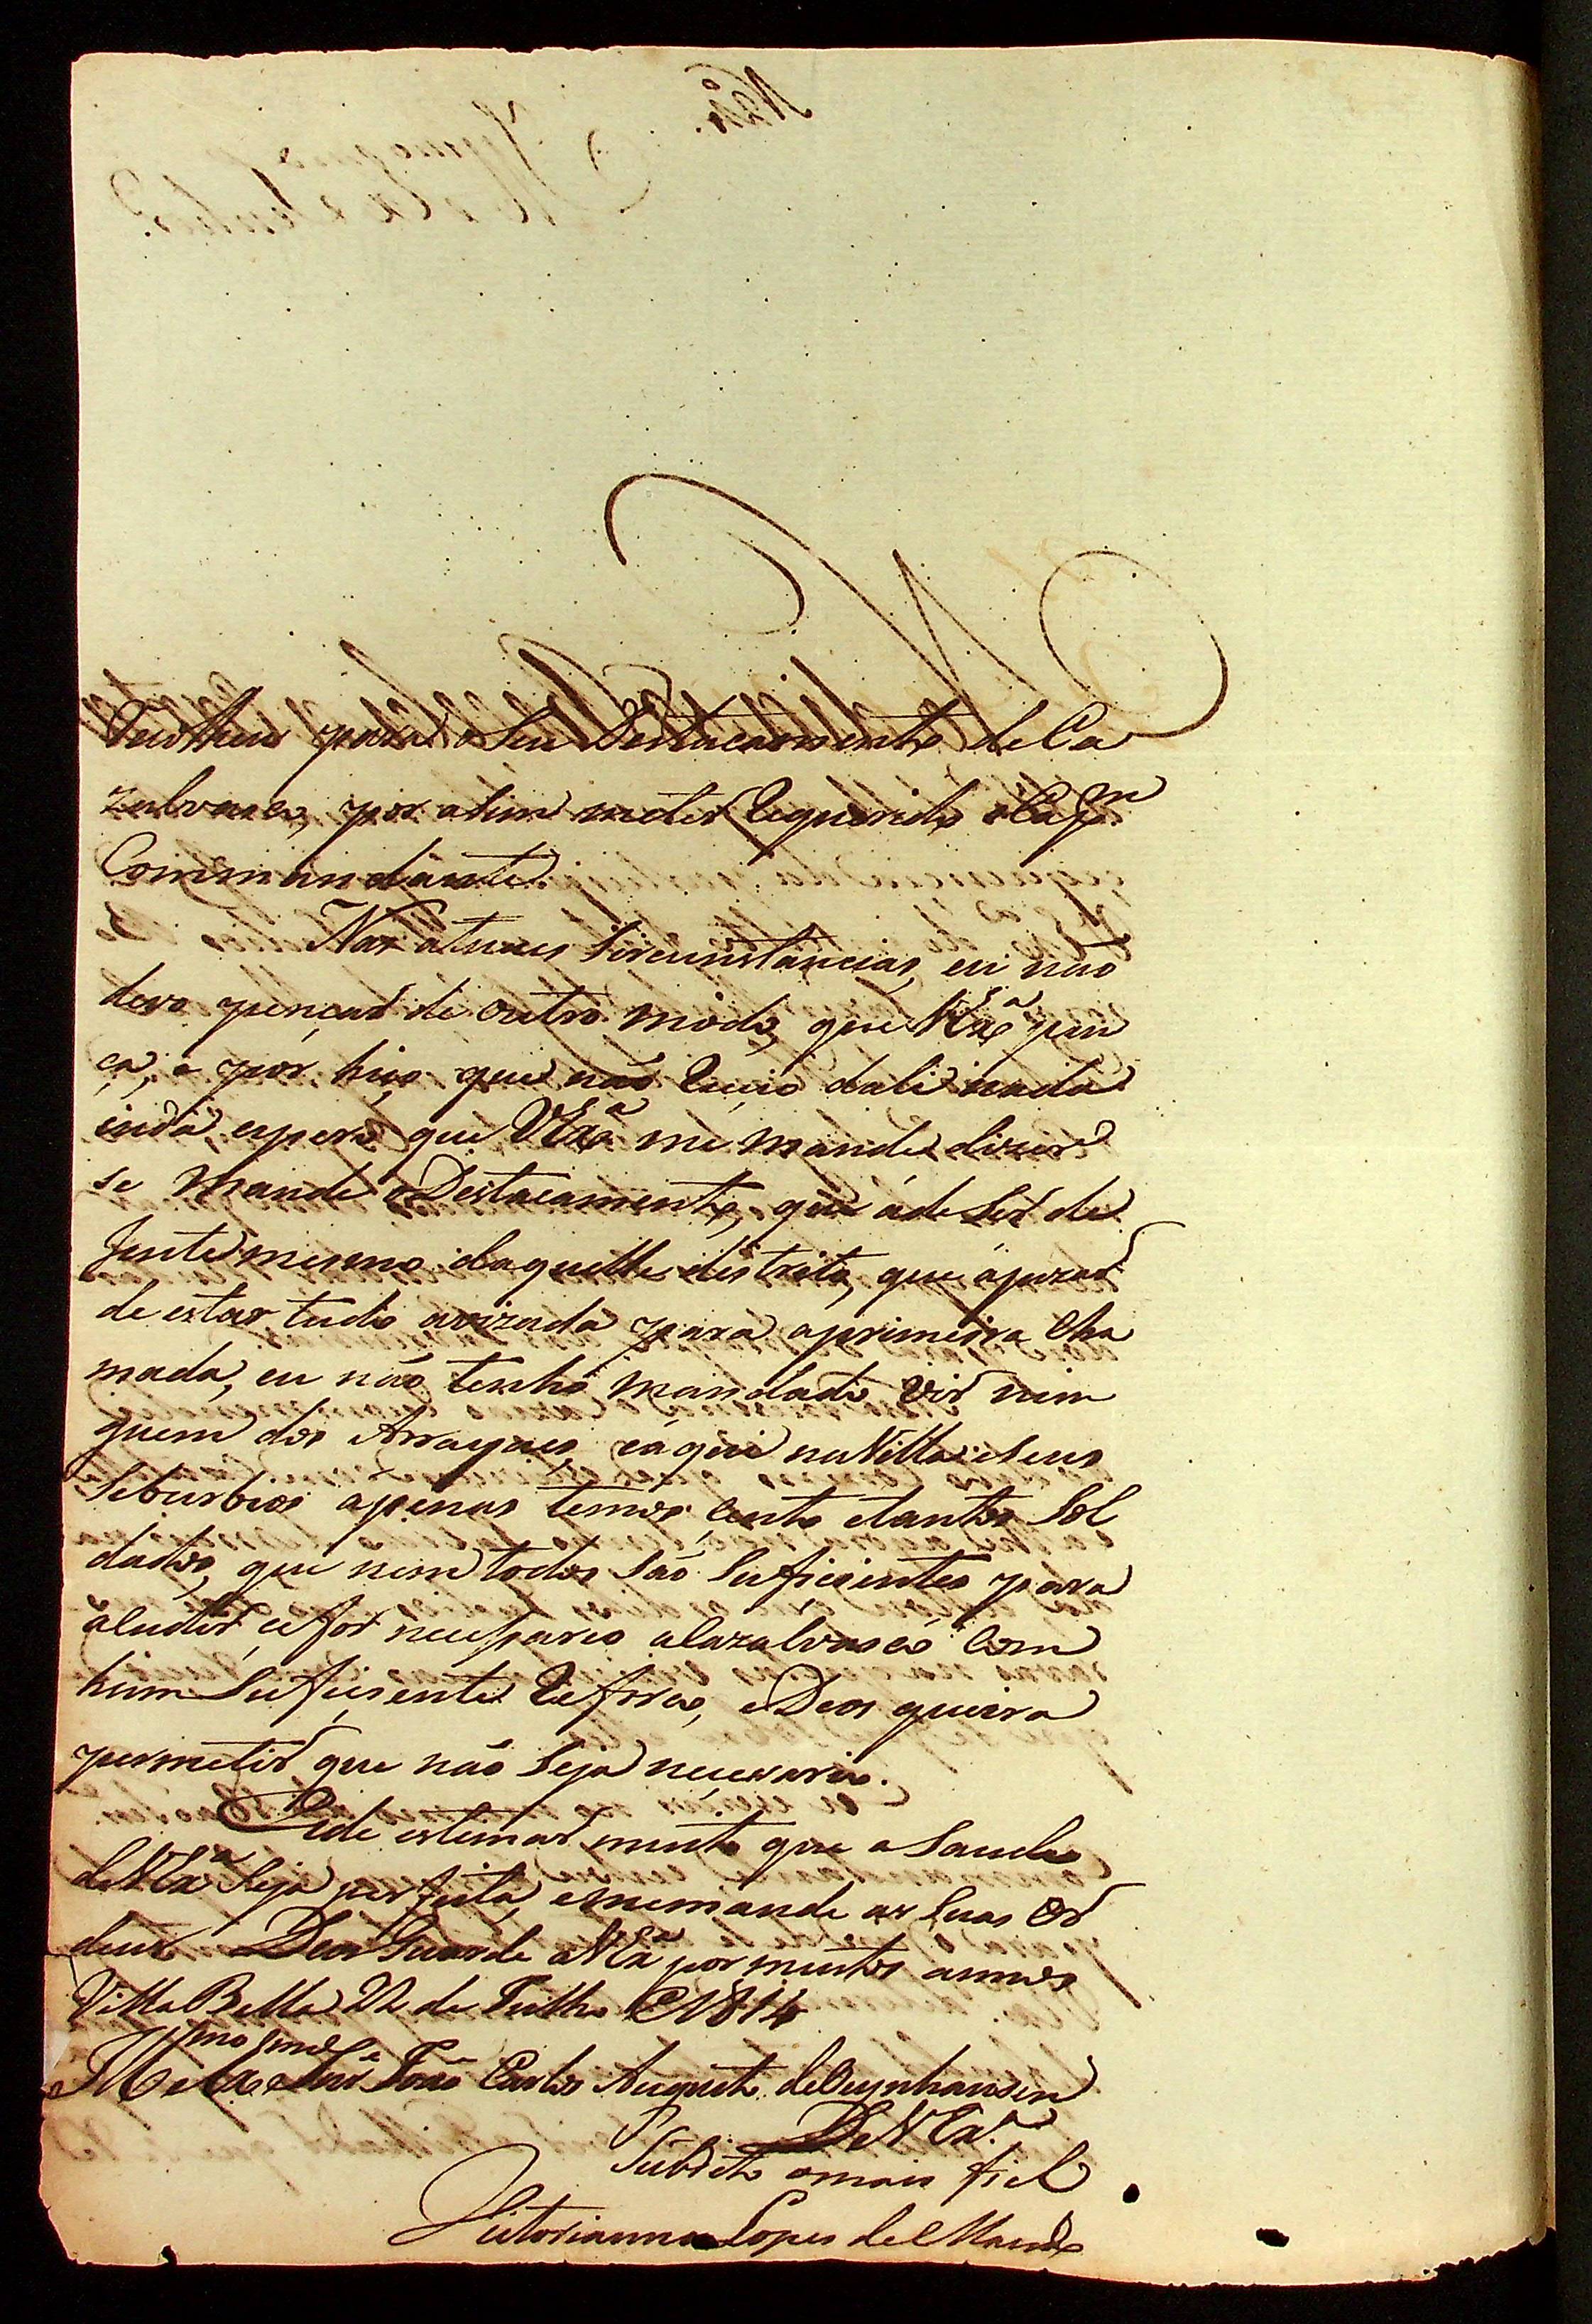 para o Seu Destacamento de Ca
zalvasco, por asim me ter requerido o Cap.m
Commandante.
Nas atuais Sircunstancias, eu não
devo pençar de outro modo, que V Ex.a pen
ça, e por hiso que não reçeio dali nada
inda espero que V Ex.a me mande dizer
se mande o Destacamento, que áde Ser de
gente mesmo daquelle destrito, que apezar
de estar tudo avizado para aprimeira cha
mada, eu não tenho mandado vir nim
guem dos Arrayaes, eáqui na Villa e Seus
Seburbios apenas temos cento etantos Sol
dados, que nem todos São Suficientes para
acudir, çe for neceçario a Cazalvasco Com
hum Suficiente reforço, e Deos queira
permetir que não Seja neçesario.
Eide estimar muito que a Saude
de V Ex.a Seja perfeita, e me mande as Suas or
dens Deos Guarde a V Ex.a por muitos annos
Villa Bella 22 de Julho de 1814
Ill.mo e Ex.mo Snr. João Carlos Augusto de Oeynhausen
De V Ex.a
Subdito o mais fiel
Victorianno Lopes de Macedo